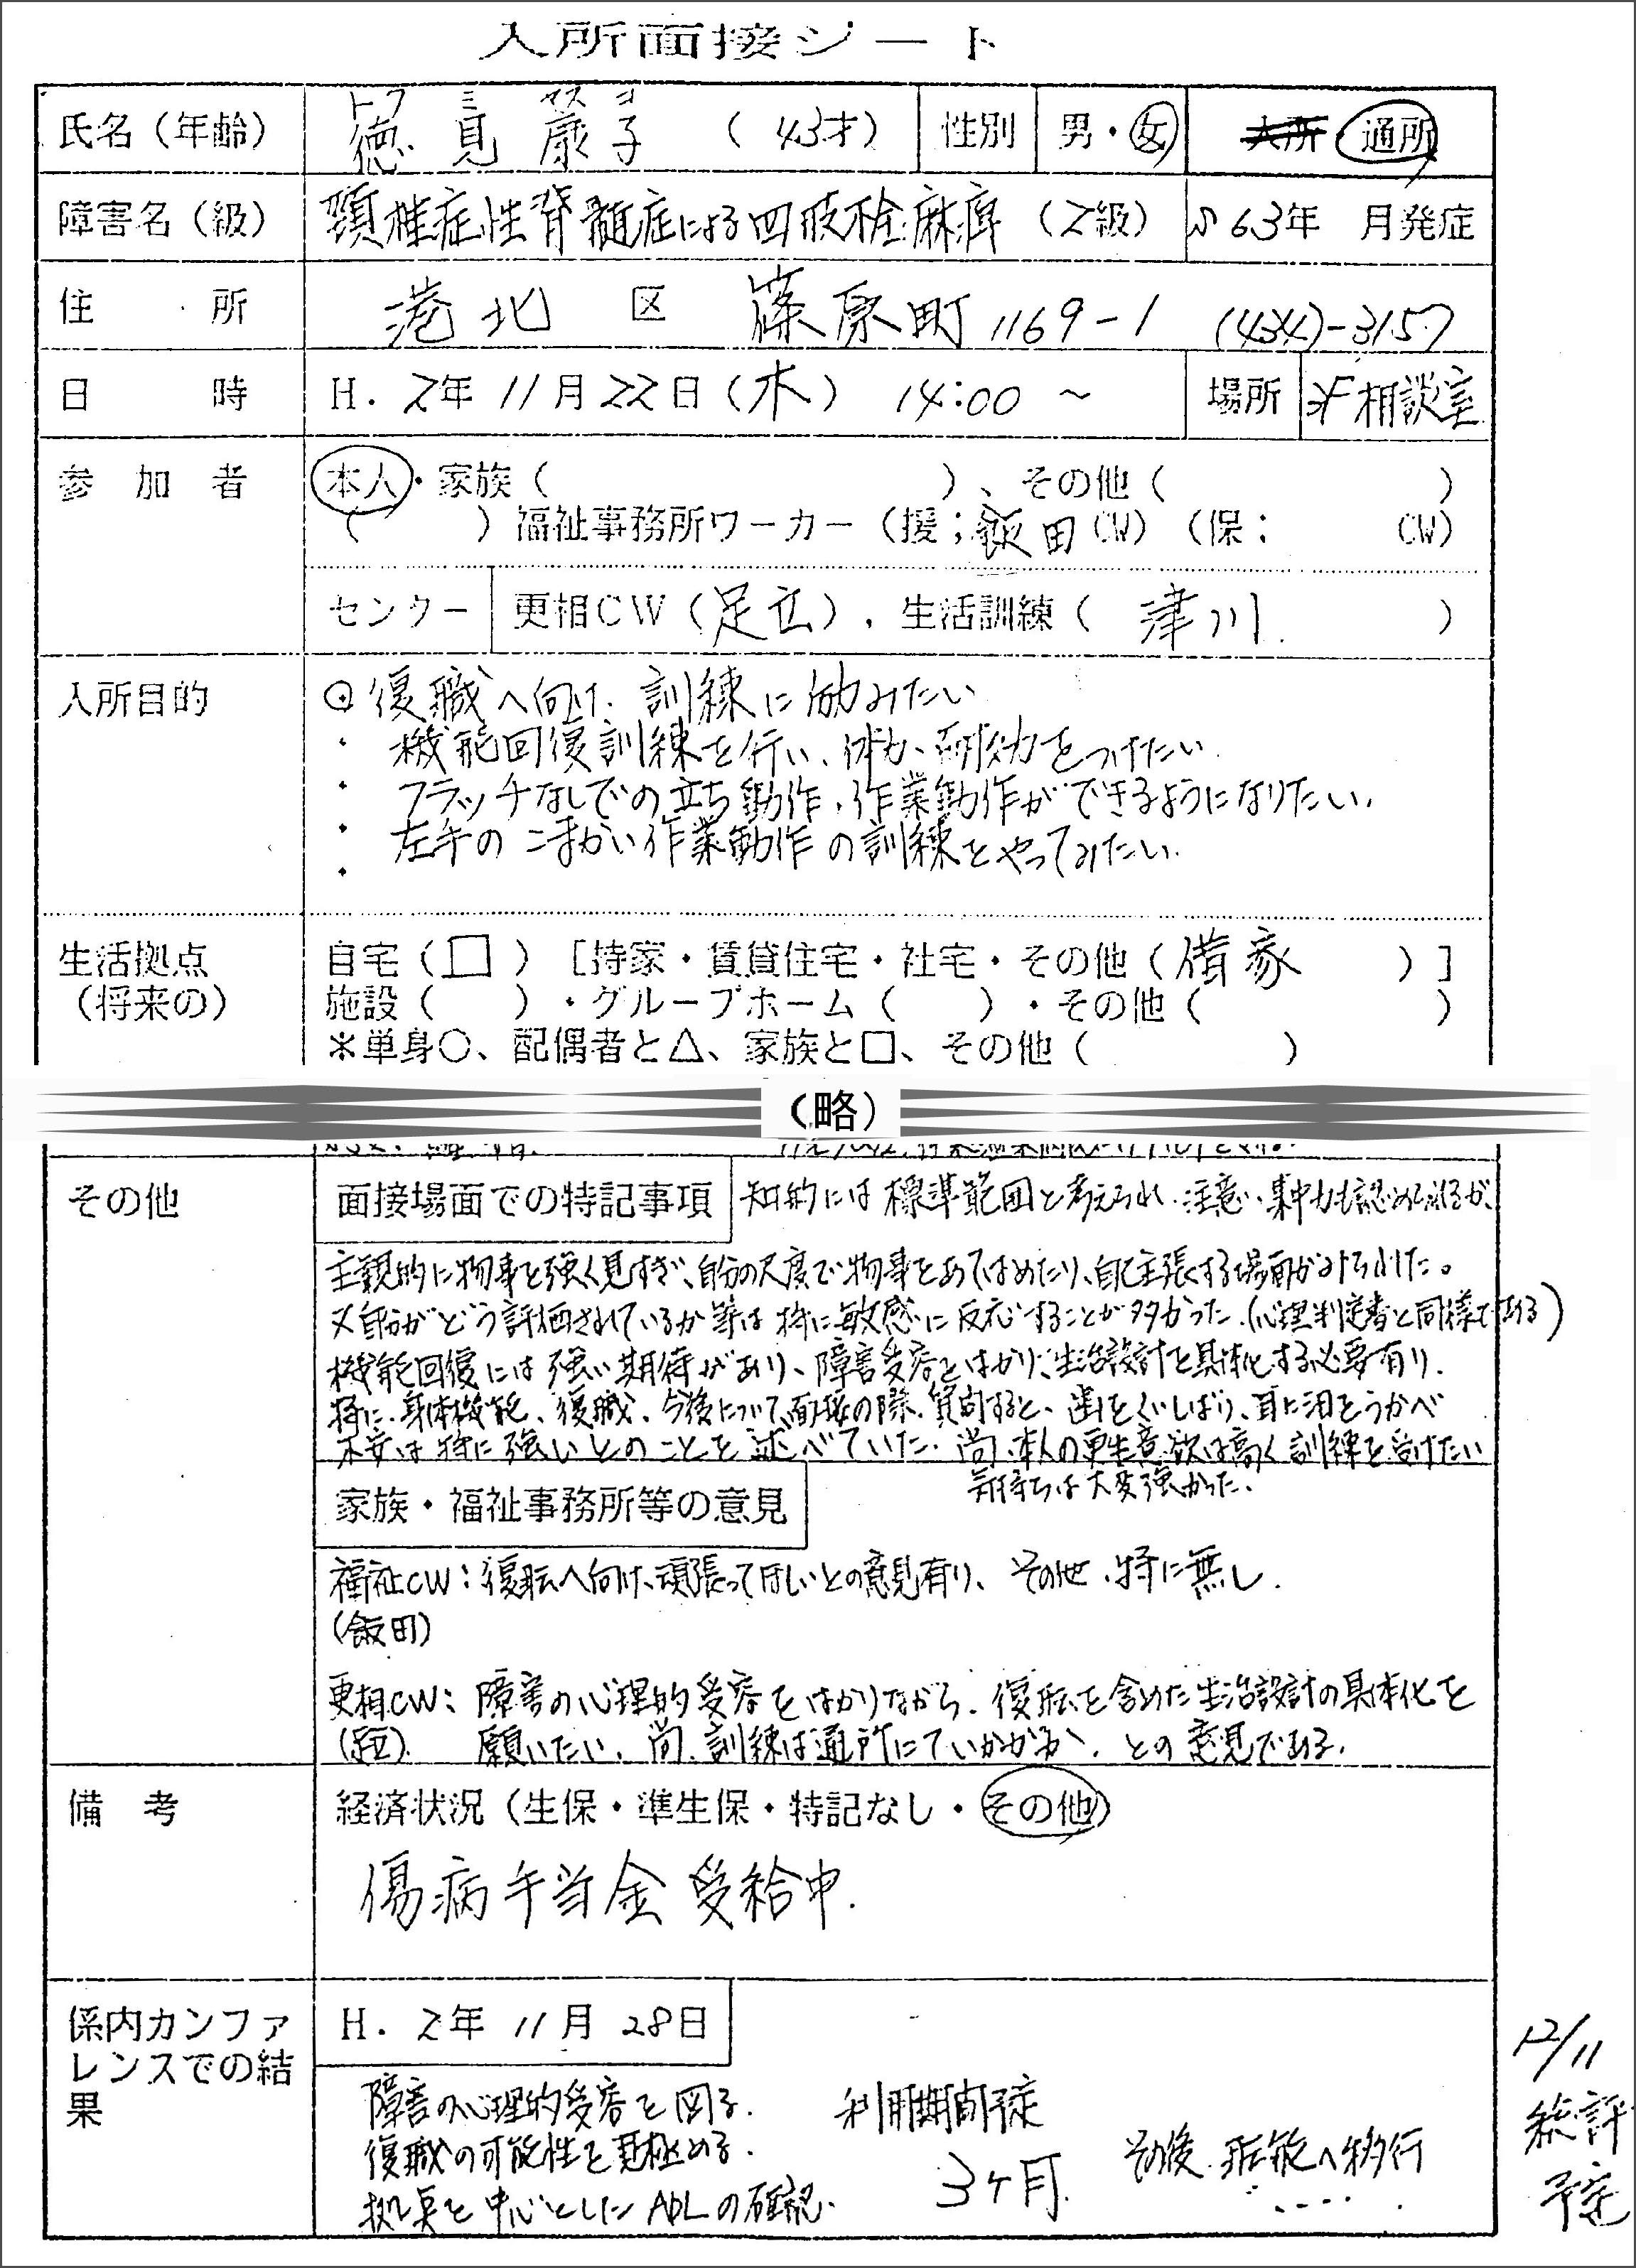 入所面接シート
氏名（年齢） トクミ ヤスコ 徳見康子 （43才） 性別 男・女 入所 通所
障害名（級） 頚椎症性脊髄症による四肢 麻痺 （2級） S63年 月発症
住 所 港北 区 篠原町1169-1 (434)-3157
日 時 H. 2年 11月22日（木） 14:00 ～ 場所 相談室
参 加 者 本人・家族（ ）、その他（ ）
（ ）福祉事務所ワーカー（援；飯田CW）（保： CW）
センター 更相CW（足立）, 生活訓練（ 津川 ）
入所目的 ◎復職へ向け、訓練に励みたい
・ 機能回復訓練を行い、体力、耐久力をつけたい。
・ クラッチなしでの立ち動作、作業動作ができるようになりたい。
・ 左手のこまかい作業動作の訓練をやってみたい。
・
生活拠点 自宅（□）［持家・賃貸住宅・社宅・その他（借家 ）］
（将来の） 施設（ ）・グループホーム（ ）・その他（ ）
＊単身○、配偶者と△、家族と□、その他（ ）
（略）
その他 面接場面での特記事項 知的には標準範囲と考えられ、注意、集中力も認められるが、
主観的に物事を強く見すぎ、自分の尺度で物事をあてはめたり、自己主張する場面がみられた。
又自分がどう評価されているか等は特に敏感に反応することが多かった。(心理判定者と同様である)
機能回復には強い期待があり、障害受容をはかり、生活設計を具体化する必要有り。
特に、身体機能、復職、今後について、面接の際、質問すると、歯をくいしばり、目に泪をうかべ
不安は特に強いとのことを述べていた。尚、本人の更生意欲は高く訓練を受けたい
気持ちは大変強かった。
家族・福祉事務所等の意見
福祉CW：復転へ向け、頑張ってほしいとの意見有り、その他、特に無し.
(飯田)
更相CW：障害の心理的受容をはかりながら、復転を含めた生活設計の具体化を
(足立) 願いたい、尚、訓練は通所にていかがか、との意見である.
備 考 経済状況（生保・準生保・特記なし・その他）
傷病手当金受給中.
係内カンファ H. 2年 11月 28日
レンスでの結
果 障害の心理的受容を図る. 利用期間予定
復職の可能性を見極める. 3ヶ月. その後 へ移行
拠点を中心としたADLの確認.
12/11
総評
予定